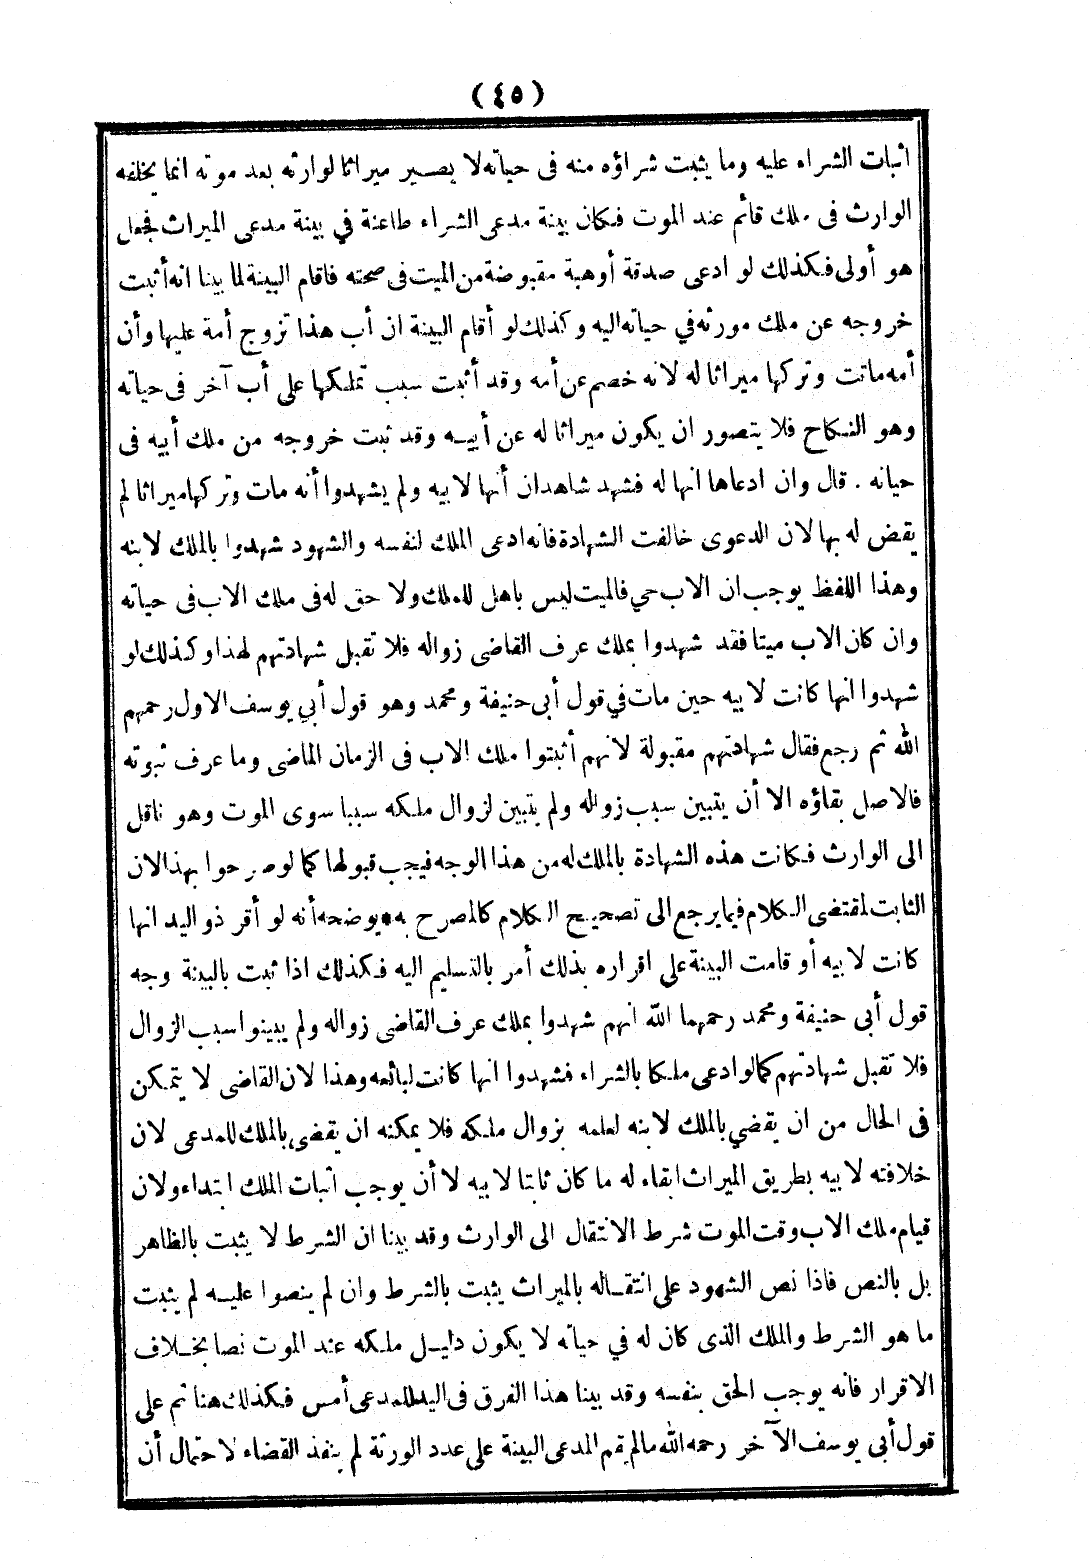 (٤٥)
اثبات الشراء عليه وما يثبت شراؤه منه فى حياته لا يصير ميراثا لوارثه بعد موته انما يخلفه
الوارث فى ملك قائم عند الموت فكان بينة مدعى الشراء طاعنة في بينة مدعى الميراث فجعل
هو أولى فكذلك لو ادعى صدقة أوهبة مقبوضة من الميت فى صحته فاقام البينة لما بينا انه أثبت
خروجه عن ملك مورثه في حياته اليه وكذلك لو أقام البينة ان أب هذا تزوج أمة عليها وأن
أمه ماتت وتركها ميراثا له لانه خصم عن أمه وقد أثبت سبب تملكها على أب آخر فى حياته
وهو النكاح فلا يتصور ان يكون ميراثا له عن أبيه وقد ثبت خروجه من ملك أبيه فى
حياته . قال وان ادعاها انها له فشهد شاهدان أنها لا بيه ولم يشهدوا أنه مات وتركها ميراثا لم
يقض له بها لان الدعوى خالفت الشهادة فانه ادعى الملك لنفسه والشهود شهدوا بالملك لابنه
وهذا اللفظ يوجب ان الاب حي فالميت ليس باهل للملك ولا حق له فى ملك الاب فى حياته
وان كان الاب ميتا فقد شهدوا بملك عرف القاضى زواله فلا تقبل شهادتهم لهذا وكذلك لو
شهدوا انها كانت لابيه حين مات في قول أبى حنيفة ومحمد وهو قول أبي يوسف الاول رحمهم
الله ثم رجع فقال شهادتهم مقبولة لانهم أثبتوا ملك الاب فى الزمان الماضى وما عرف ثبوته
فالاصل بقاؤه الا أن يتبين سبب زواله ولم يتبين لزوال ملكه سببا سوى الموت وهو ناقل
الى الوارث فكانت هذه الشهادة بالملك له من هذا الوجه فيجب قبولها كما لو صرحوا بهذا لان
الثابت لمقتضى الكلام فيما يرجع الى تصحيح الكلام كالمصرح به * يوضحه أنه لو أقر ذو اليد انها
كانت لابيه أو قامت البينة على اقراره بذلك أمر بالتسليم اليه فكذلك اذا ثبت بالبينة وجه
قول أبى حنيفة ومحمد رحمهما الله انهم شهدوا بملك عرف القاضى زواله ولم يبينوا سبب الزوال
فلا تقبل شهادتهم كما لو ادعى ملكا بالشراء فشهدوا انها كانت لبائعه وهذا لان القاضى لا يتمكن
فى الحال من ان يقضي بالملك لابنه لعلمه بزوال ملكه فلا يمكنه ان يقضى بالملك للمدعى لان
خلافته لابيه بطريق الميراث ابقاء له ما كان ثابتا لابيه لا أن يوجب اثبات الملك ابتداء ولان
قيام ملك الاب وقت الموت شرط الانتقال الى الوارث وقد بينا ان الشرط لا يثبت بالظاهر
بل بالنص فاذا نص الشهود على انتقاله بالميراث يثبت بالشرط وان لم ينصوا عليه لم يثبت
ما هو الشرط والملك الذى كان له في حياته لا يكون دليل ملكه عند الموت نصا بخلاف
الاقرار فانه يوجب الحق بنفسه وقد بينا هذا الفرق فى اليد للمدعى أمس فكذلك هنا ثم على
قول أبي يوسف الآخر رحمه الله مالم يقم المدعى البينة على عدد الورثة لم ينفذ القضاء لاحتمال أن